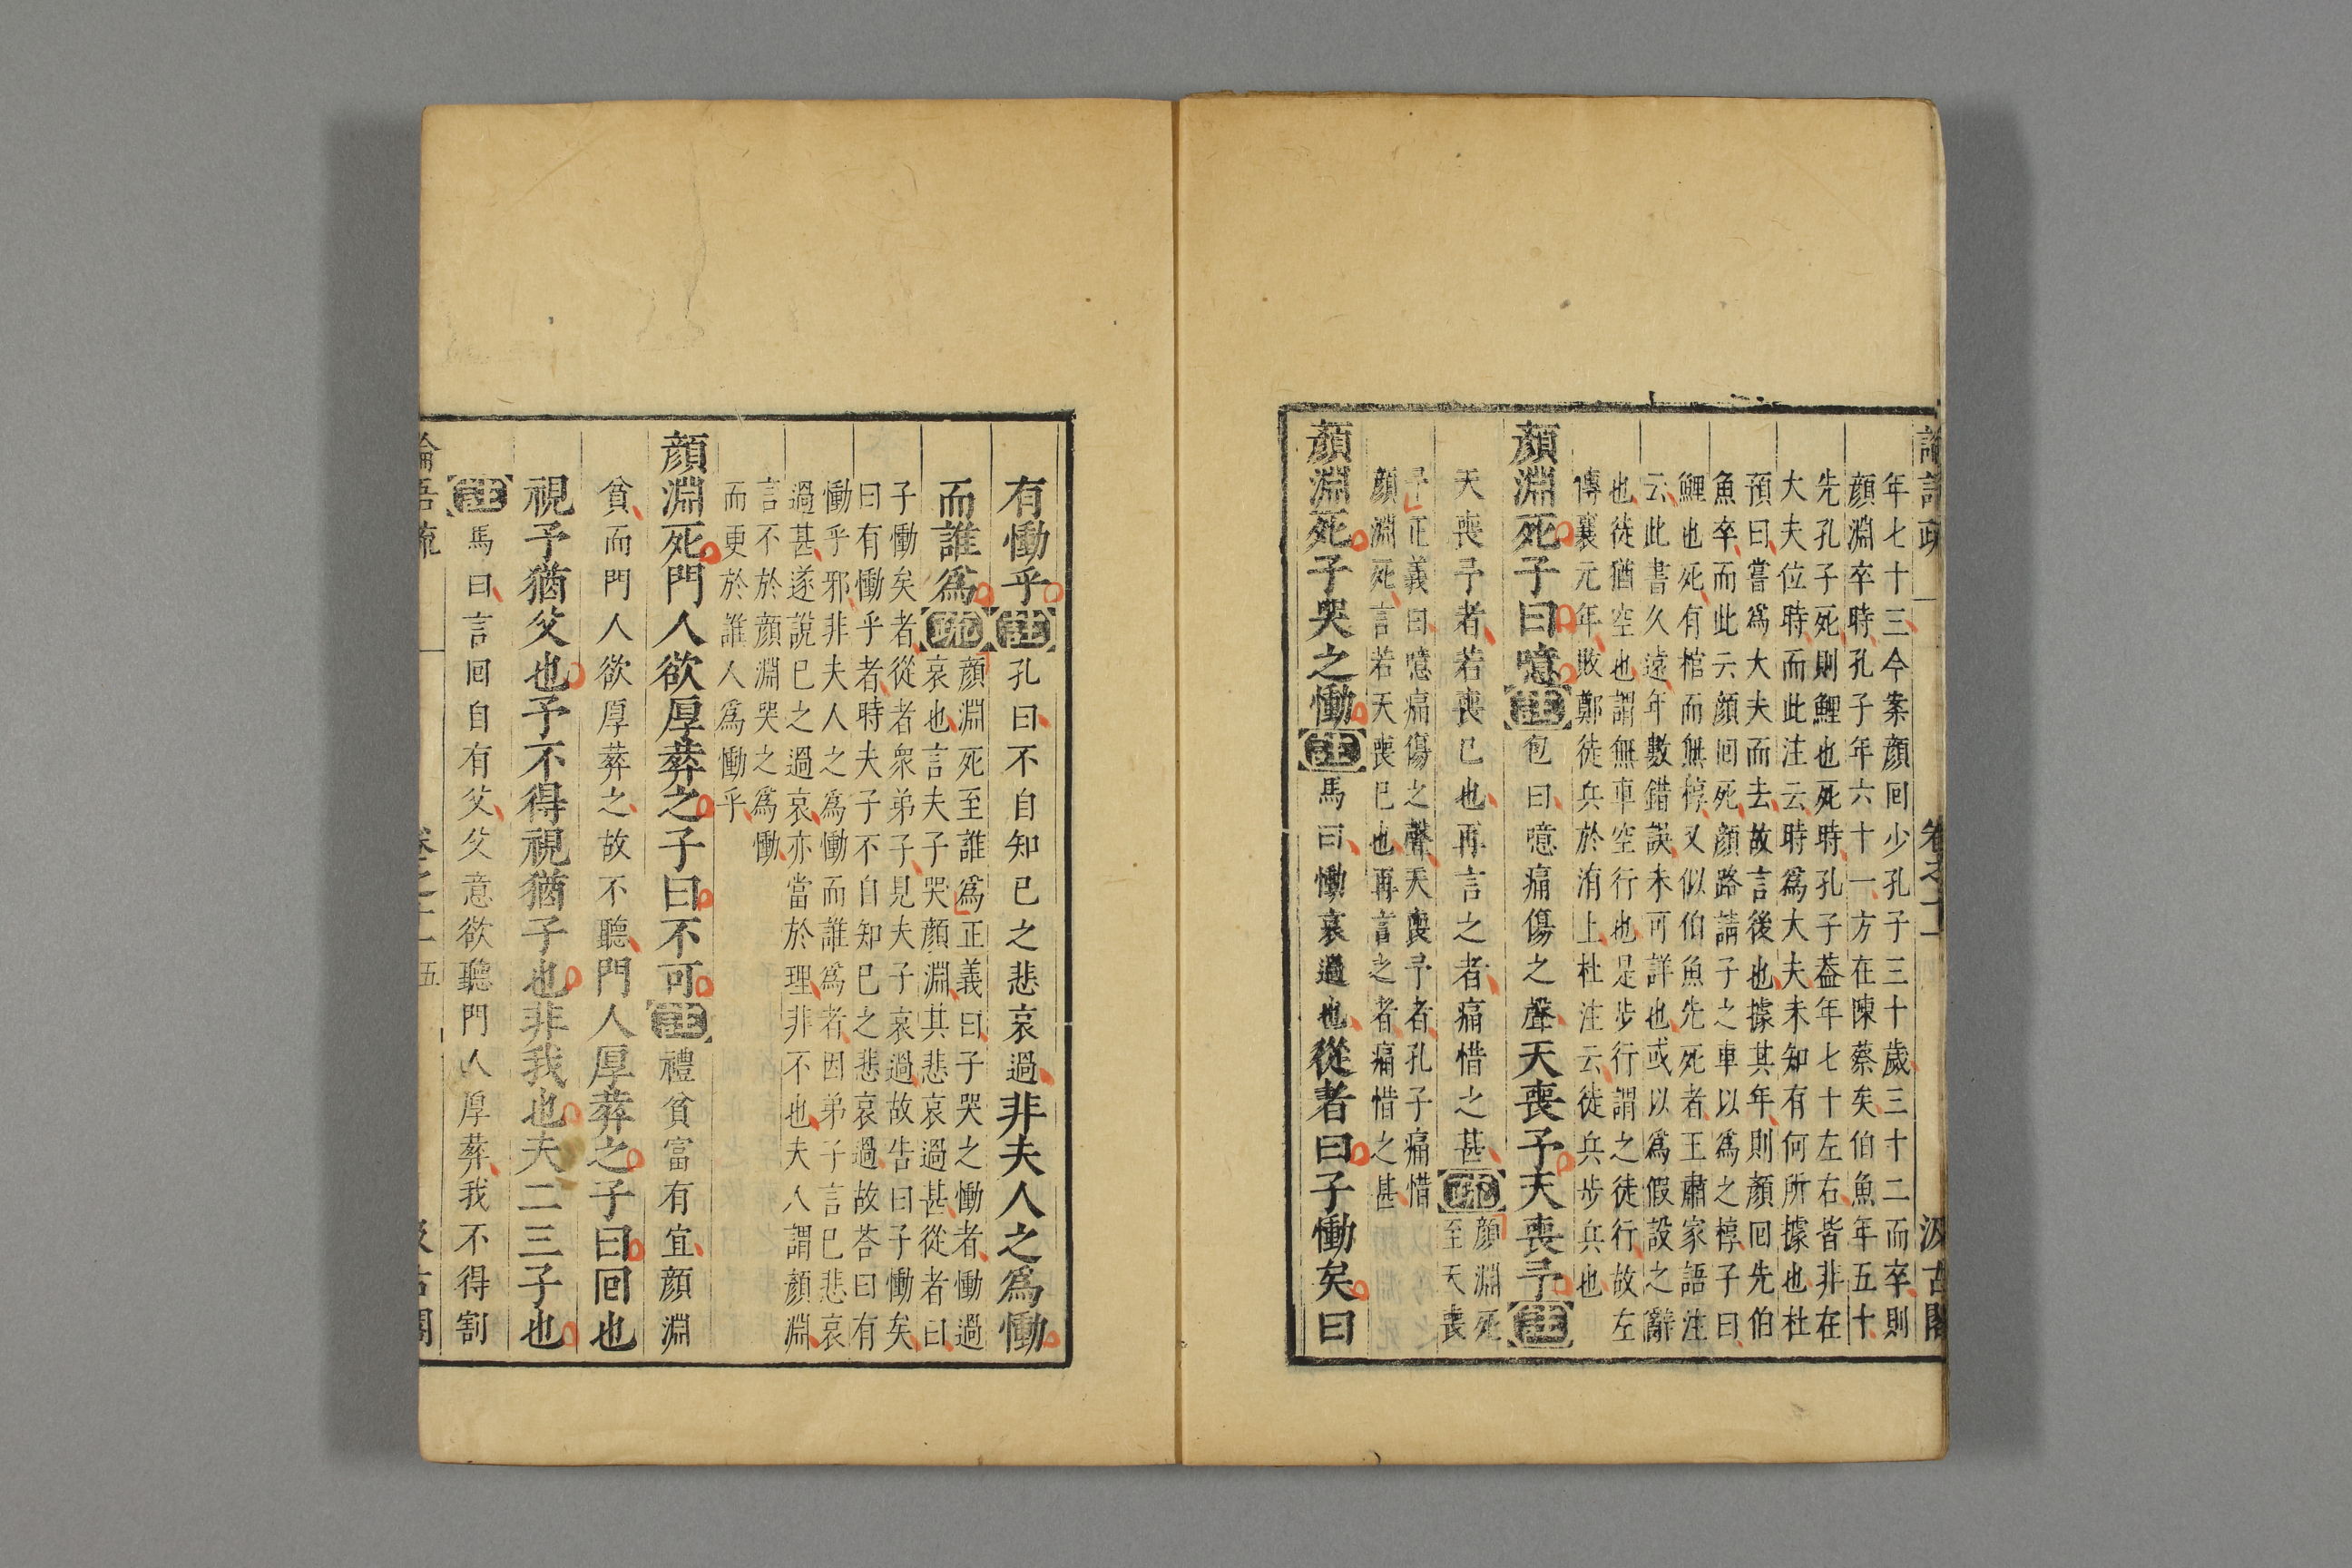 年七十三今案顔回少孔子三十歲三十二而卒則
顔淵卒時孔子年六十一方在陳蔡矣伯魚年五十
先孔子死則鯉也死時孔子葢年七十左右皆非在
大夫位時而此注云時爲大夫未知有何所據也杜
預曰嘗爲大夫而去故言後也據其年則顔回先伯
魚卒而此云顔回死顔路請子之車以爲之椁子曰
鯉也死有棺而無椁又似伯魚先死者王肅家語注
云此書久遠年數錯誤未可詳也或以爲假設之辭
也徒猶空也謂無車空行也是步行謂之徒行故左
傳襄元年敗鄭徒兵於洧上杜注云徒兵步兵也
顔淵死子曰噫註包曰噫痛傷之聲天喪予天喪予註
天喪予者若喪已也再言之者痛惜之甚疏顔淵死
至天喪
予正義曰噫痛傷之聲天喪予者孔子痛惜
顔淵死言若天喪已也再言之者痛惜之甚
顔淵死子哭之慟註馬曰慟哀過也從者曰子慟矣曰
有慟乎註孔曰不自知已之悲哀過非夫人之爲慟
而誰爲疏顔淵死至誰爲正義曰子哭之慟者慟過
哀也言夫子哭顔淵其悲哀過甚從者曰
子慟矣者從者衆弟子見夫子哀過故告曰子慟矣
曰有慟乎者時夫子不自知已之悲哀過故荅曰有
慟乎邪非夫人之爲慟而誰爲者因弟子言已悲哀
過甚遂說已之過哀亦當於理非不也夫人謂顔淵
言不於顔淵哭之爲慟
而更於誰人爲慟乎
顔淵死門人欲厚葬之子曰不可註禮貧富有宜顔淵
貧而門人欲厚葬之故不聽門人厚葬之子曰回也
視予猶父也予不得視猶子也非我也夫二三子也
註馬曰言回自有父父意欲聽門人厚葬我不得割